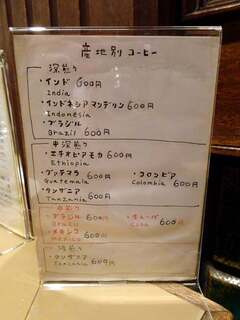 産地別 コーヒー
深煎り
・インド 600円
India
・インドネシア マンデリン 600円
Indonesia
・ブラジル
Brazil 600円
中深煎り
・エチオピアモカ 600円
Ethiopia
・グァテマラ 600円 ・コロンビア
Guatemala Colombia 600円
・タンザニア
Tanzania 600円
中煎り
・ブラジル 600円 ・キューバ
Brazil Cuba 600円
・メキシコ 600円
Mexico
浅煎り
・タンザニア
Tanzania 600円